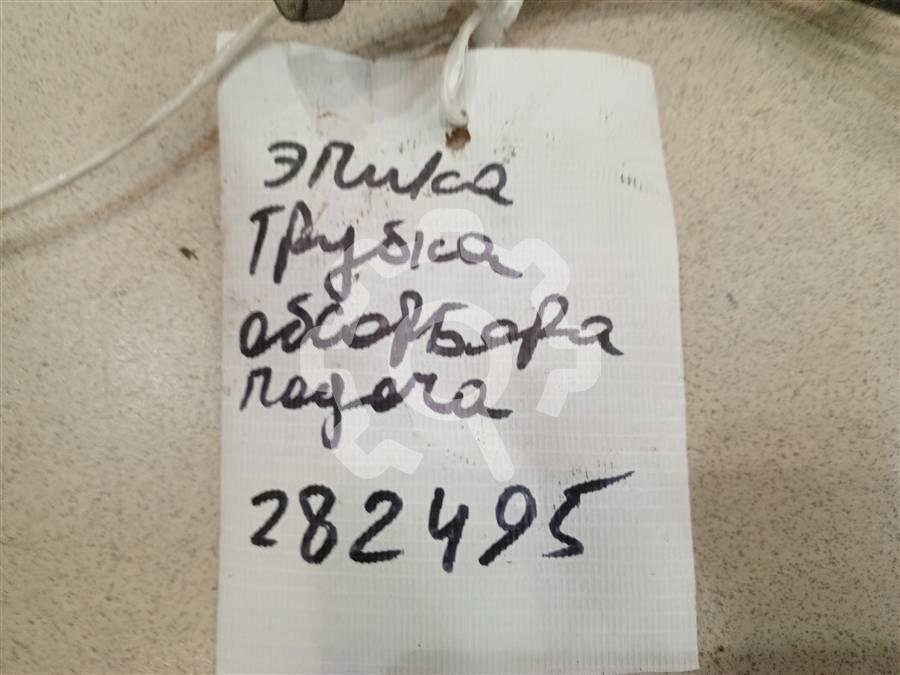 Эпика
Трубка
абсорбера
подача
282495